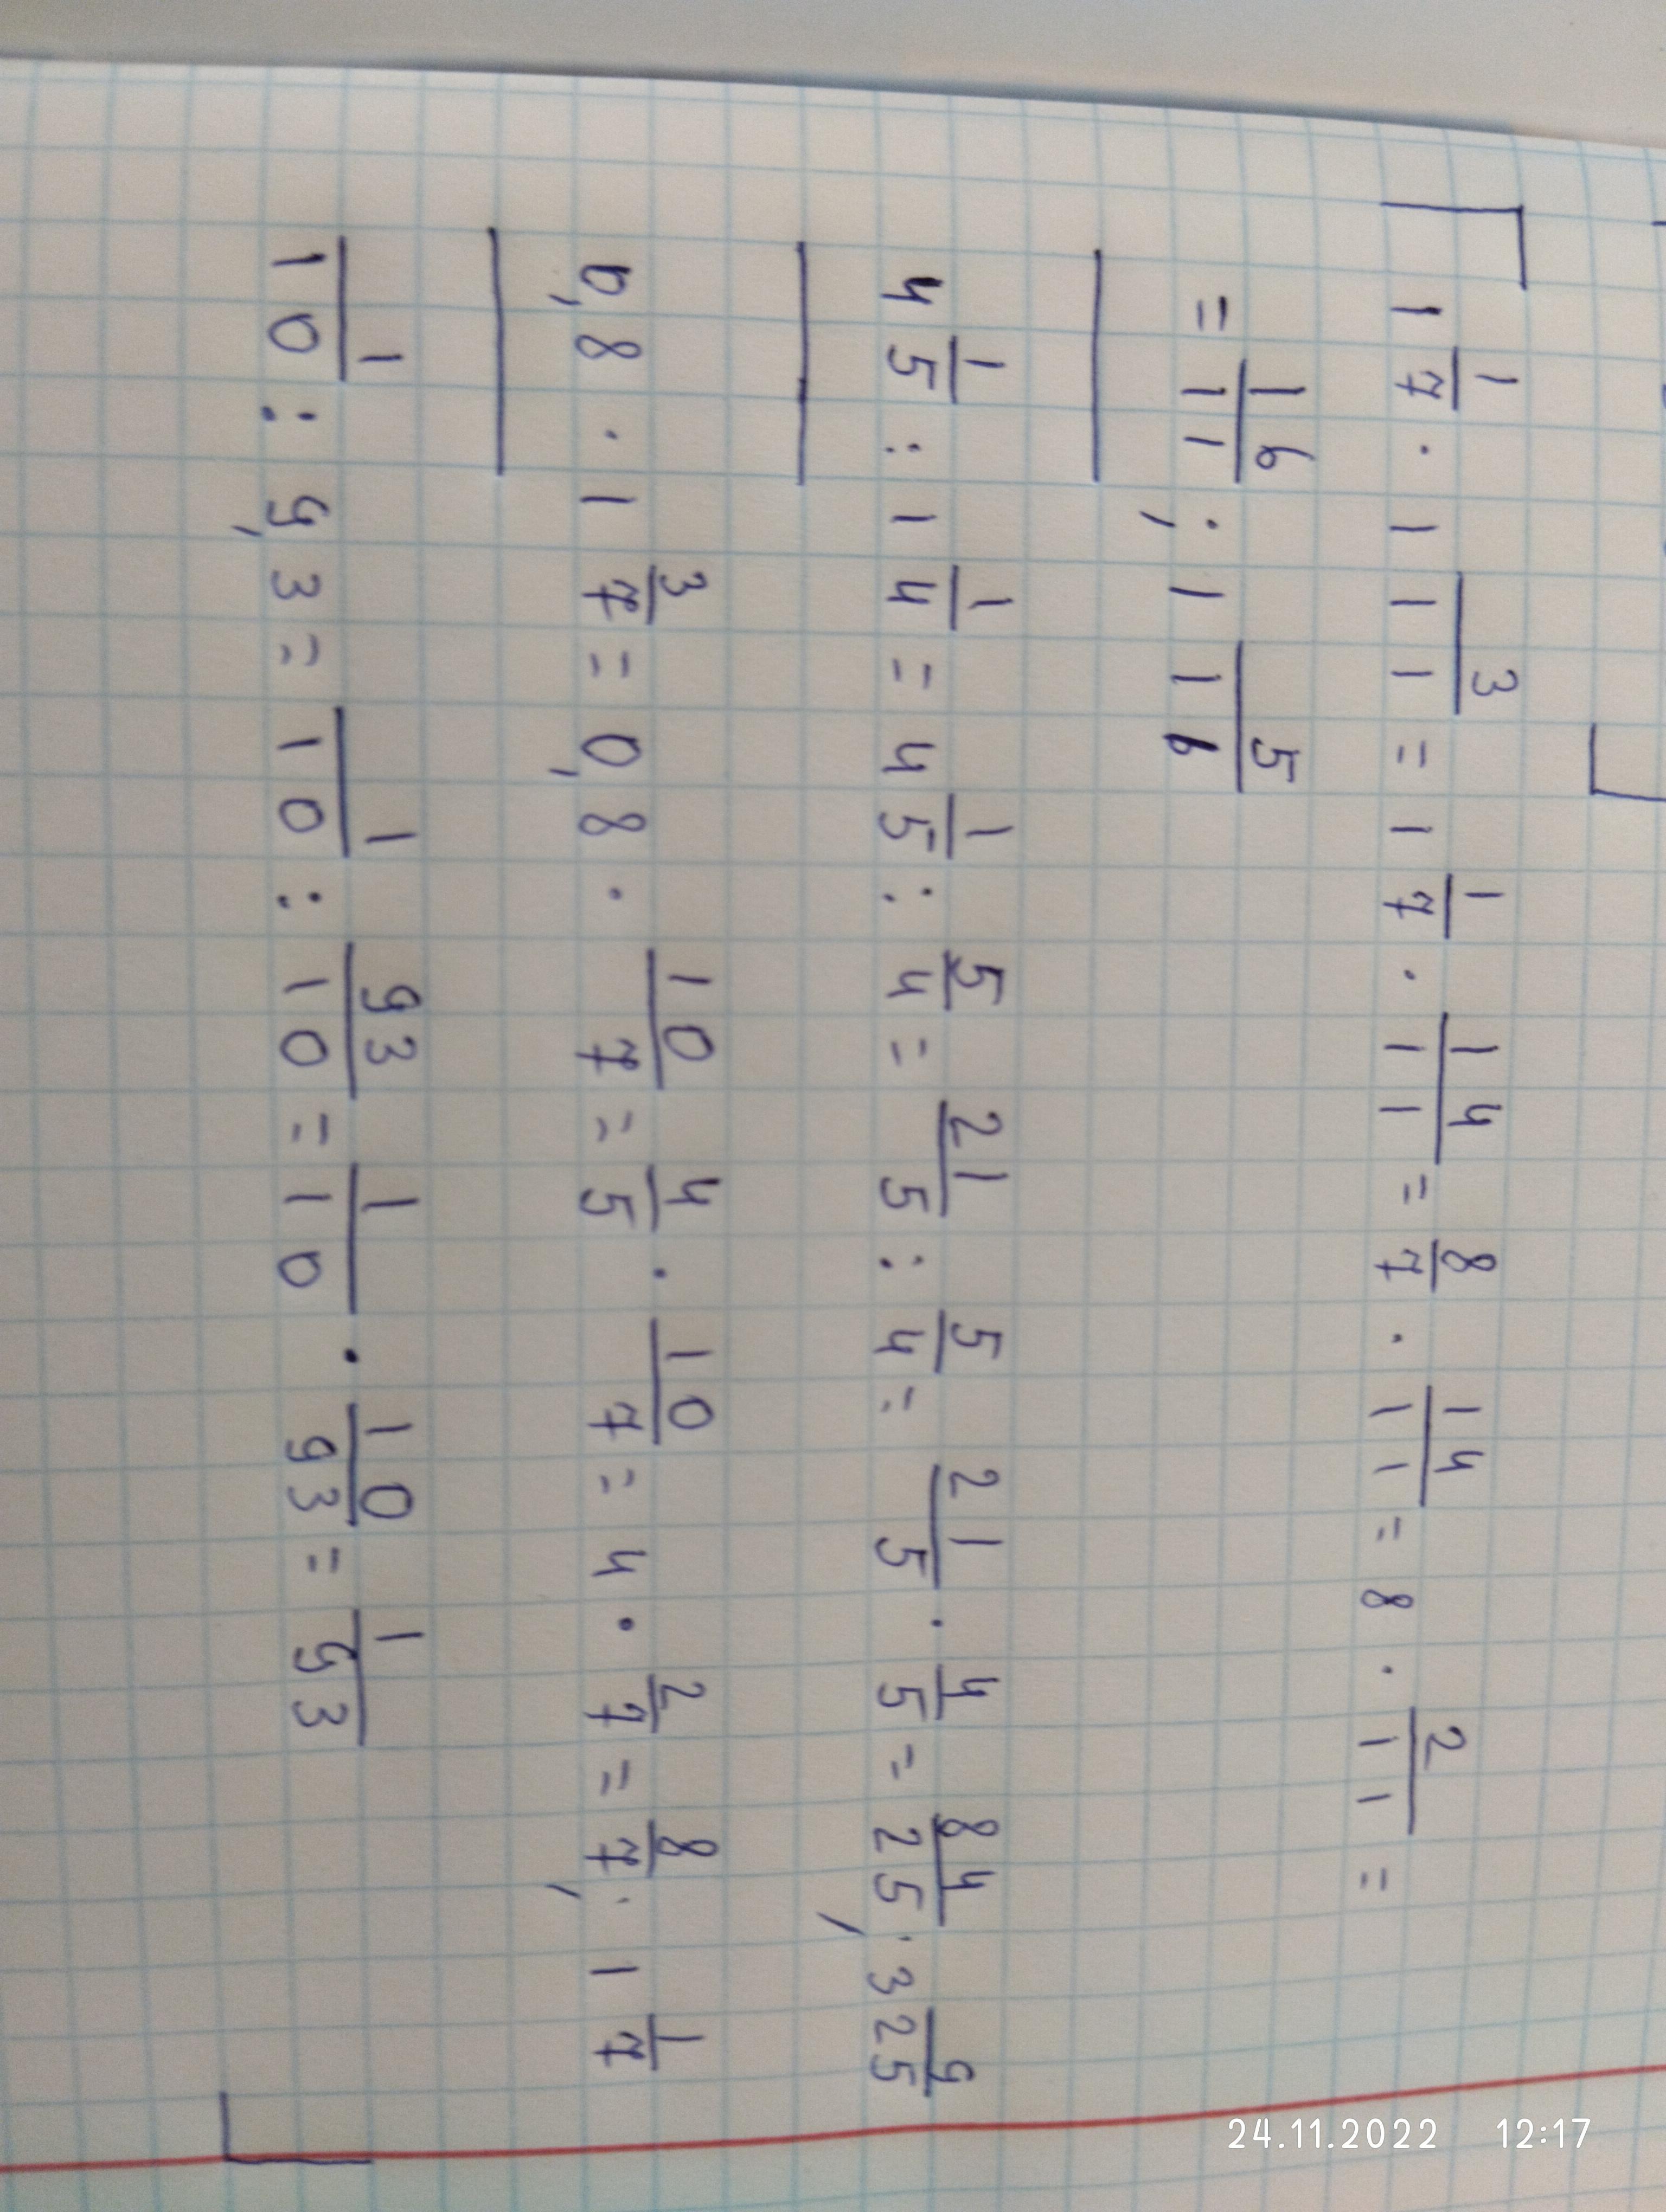 1 1/7 · 1 3/11 = 1 1/7 · 14/11 = 8/7 · 14/11 = 8 · 2/11 =
= 16/11 ; 1 5/16
4 1/5 : 1 1/4 = 4 1/5 : 5/4 = 21/5 : 5/4 = 21/5 · 4/5 = 84/25 ; 3 9/25
0,8 · 1 3/7 = 0,8 · 10/7 = 4/5 · 10/7 = 4 · 2/7 = 8/7 ; 1 1/7
1/10 : 9,3 = 1/10 : 93/10 = 1/10 · 10/93 = 1/93
24.11.2022 12:17